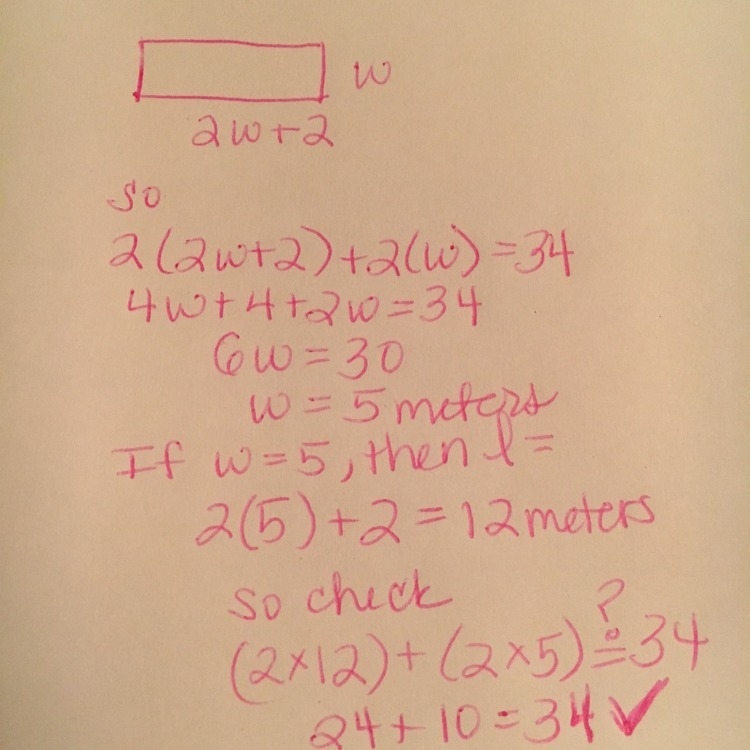 w
2w+2
so
2(2w+2)+2(w)=34
4w+4+2w=34
6w=30
w=5 meters
If w=5, then l=
2(5)+2=12 meters
so check
?
(2×12)+(2×5)=34
24+10=34✓